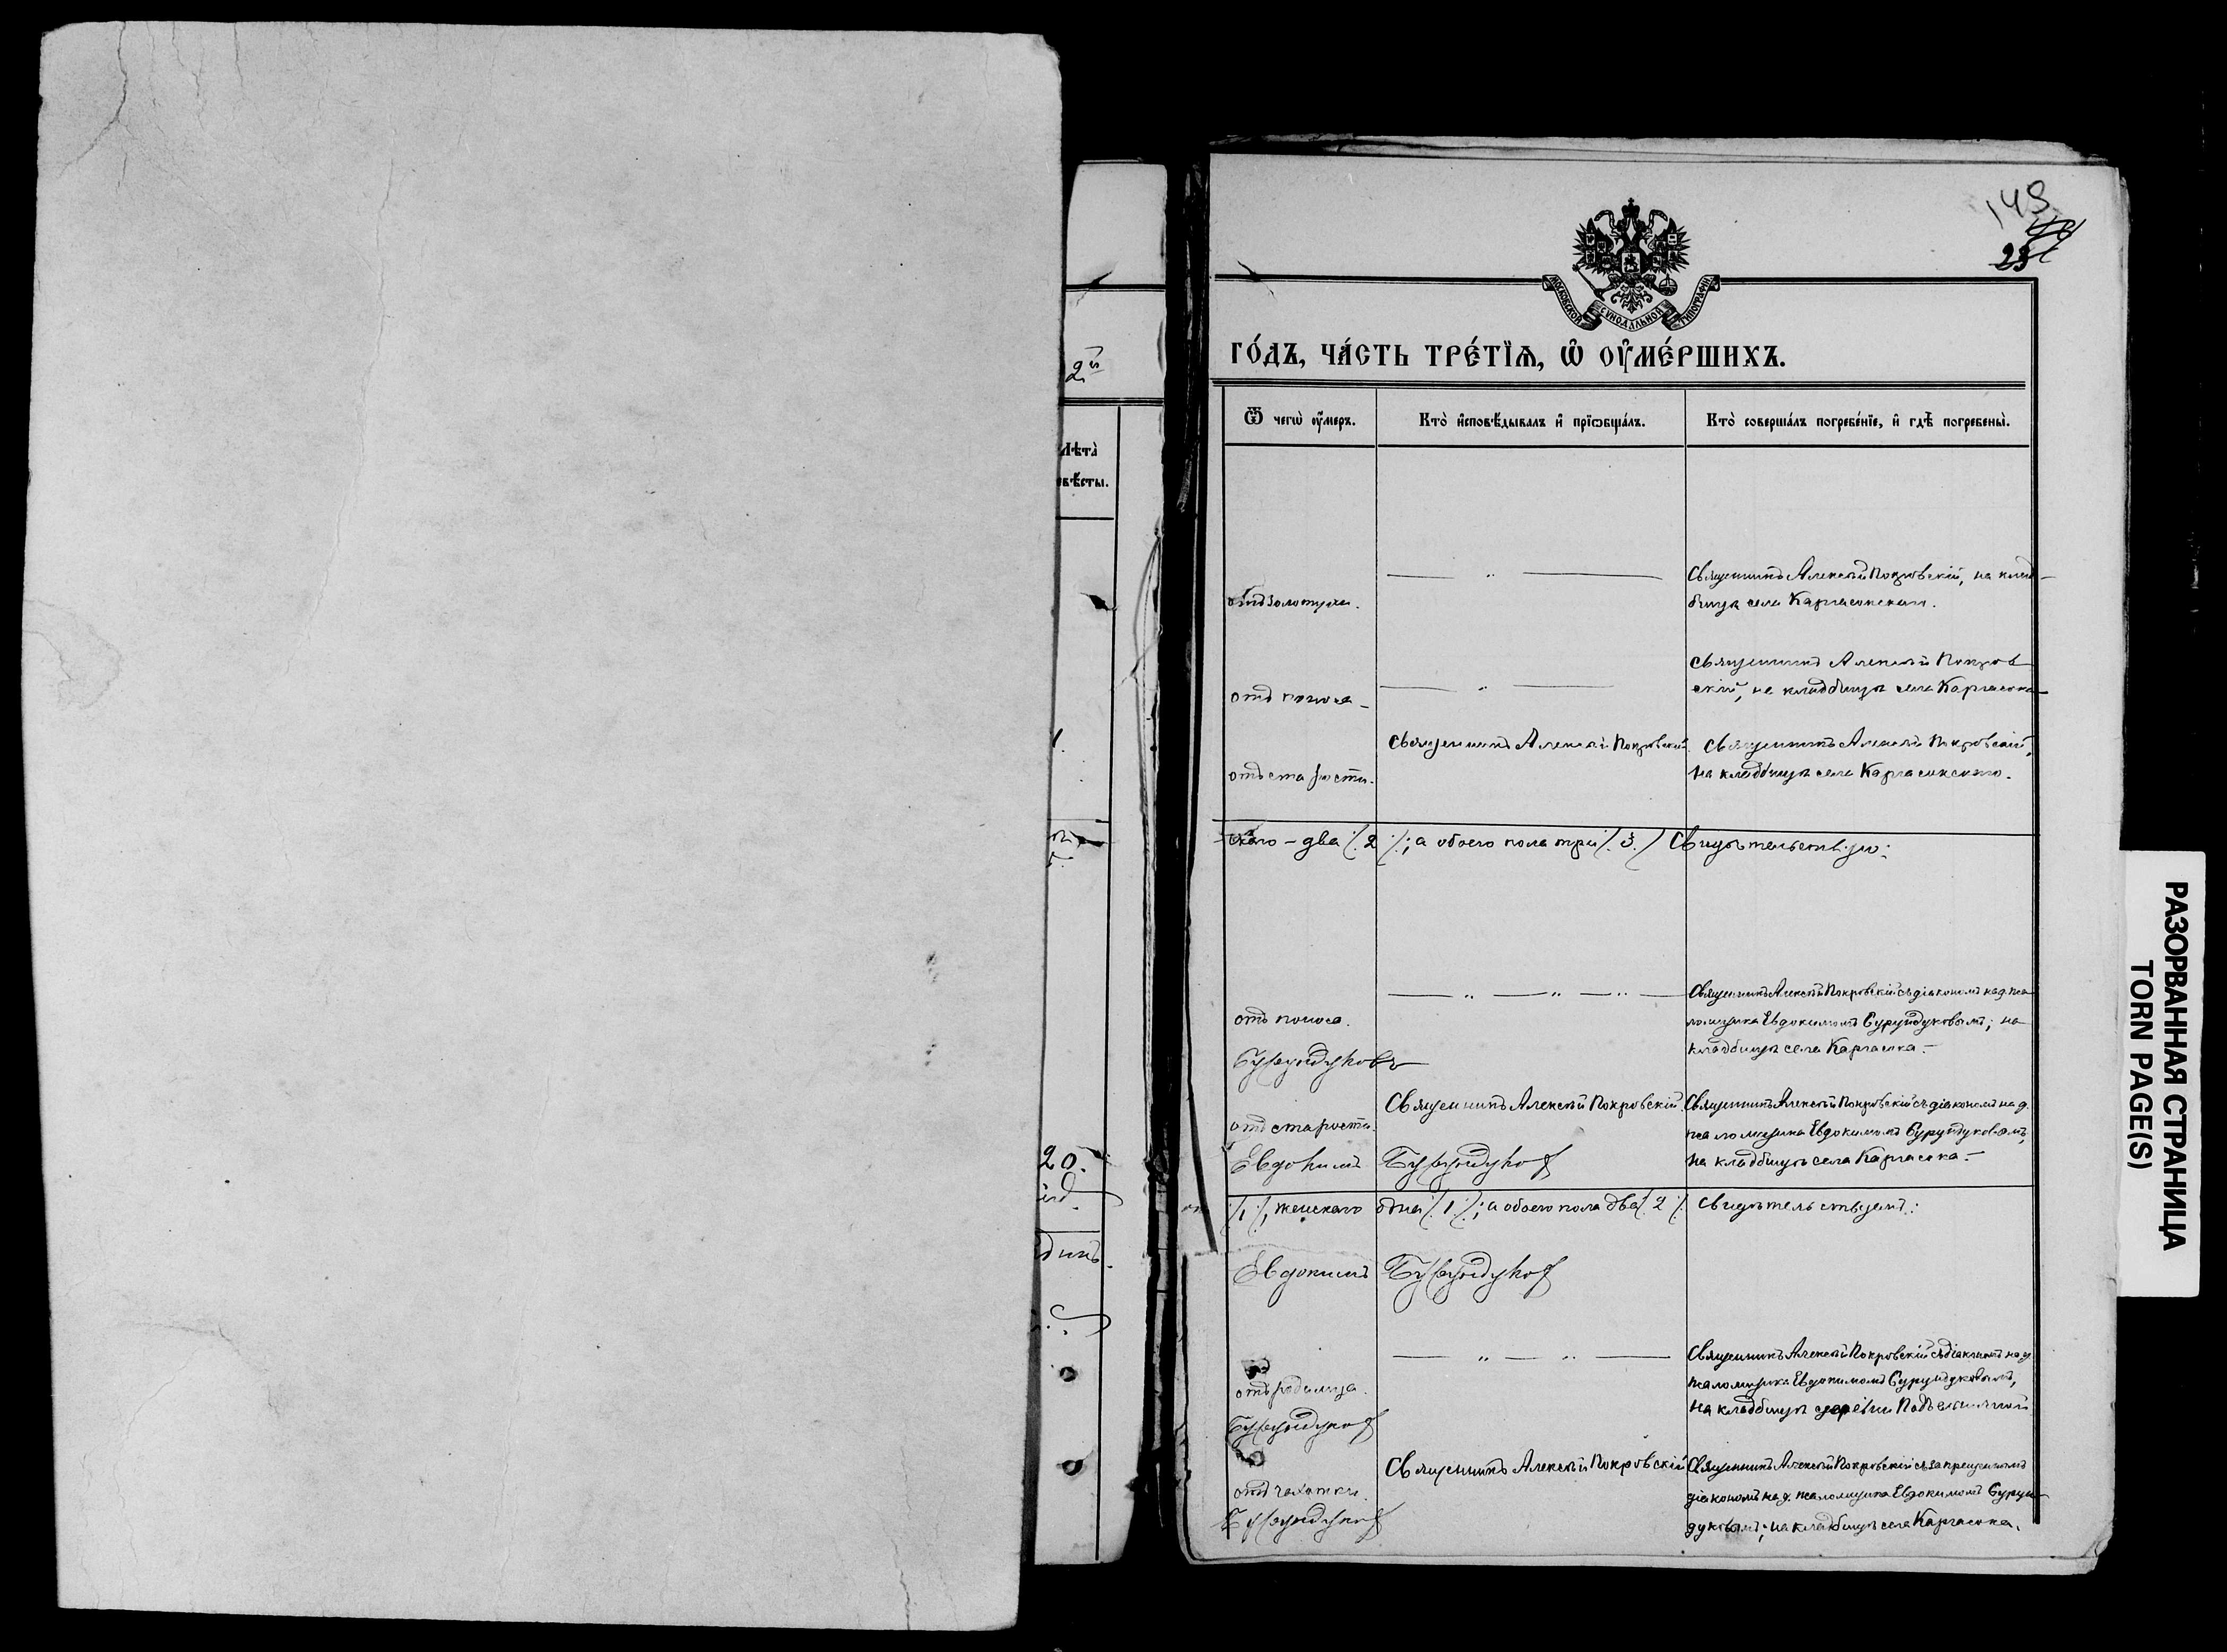 2й
Лѣта̀
вѣ́сты.
20.
динъ.
149
23
МОСКОВСКОЙ СѴНОДАЛЬНОЙ ТИПОГРАФІИ
ГО́ДЪ, ЧА́СТЬ ТРЕ́ТЇѦ, Ѽ ОУ҆МЕ́РШИХЪ.
Ѿ чегѡ̀ ᲂу҆́меръ.
Кто̀ и҆сповѣ́дывалъ и҆ прїѡбща́лъ.
Кто̀ соверша́лъ погребе́нїе, и҆ гдѣ̀ погребены̀.
отъ золотухи.
Священникъ Алексѣй Покровскій, на клад-
бищѣ села Каргасокскаго.
отъ поноса
Священникъ Алексѣй Покров
скій, на кладбищѣ села Каргасока
отъ старости.
Священникъ Алексѣй Покровскій
Священникъ Алексѣй Покровскій,
на кладбищѣ села Каргасокскаго.
скаго – два /. 2 ./; а обоего пола три /. 3. / Свидѣтельствую:
отъ поноса.
Священникъ Алексѣй Покровскій съ діакономъ на д. пса
ломщика Евдокимомъ Бурундуковымъ; на
кладбищѣ села Каргасока.–
Бурундуковъ
отъ старости.
Священникъ Алексѣй Покровскій.
Священникъ Алексѣй Покровскій съ діакономъ на д.
псаломщика Евдокимомъ Бурундуковымъ,
на кладбищѣ села Каргасока.–
Евдокимъ Бурундуковъ
/. 1 ./, женскаго одна /. 1 ./; а обоего пола два /. 2 ./. Свидѣтельствуемъ:
Евдокимъ Бурундуковъ
отъ родимца.
Священникъ Алексѣй Покровскій съ діакономъ на д.
псаломщика Евдокимомъ Бурундуковымъ,
на кладбищѣ деревни
Бурундуковъ
отъ чахотки.
Священникъ Алексѣй Покровскій
Священникъ Алексѣй Покровскій съ запрещеннымъ
діакономъ на д. псаломщика Евдокимомъ Бурун-
дуковымъ; на кладбищѣ села Каргасока.
Бурундуковъ
РАЗОРВАННАЯ СТРАНИЦА
TORN PAGE(S)